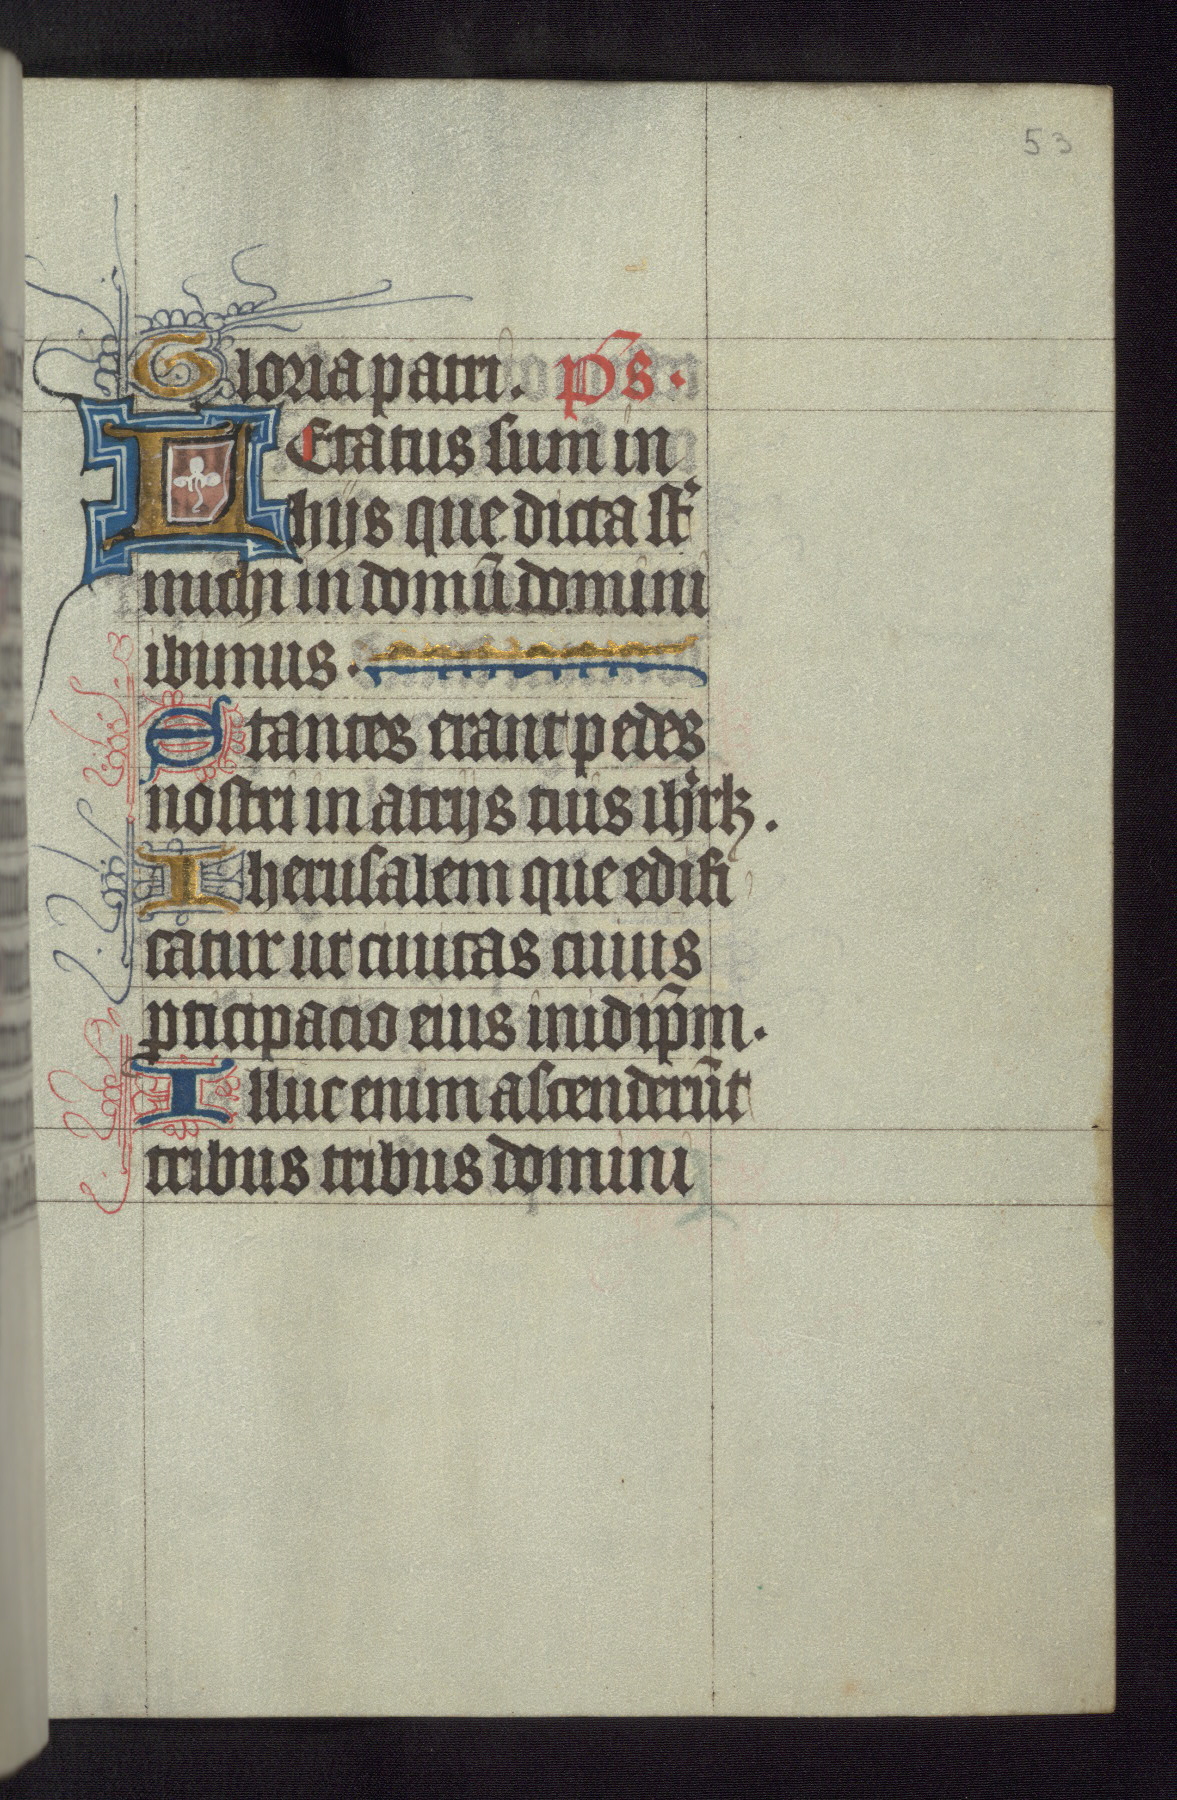 53
Gloria patri. p̄s.
LEtatus sum in
hijs que dicta st̄
michi in domū domini
ibimus.
Stantes erant pedes
nostri in atrijs tuis ihr̄lz.
Iherusalem que edifi
catur ut ciuitas cuius
ꝑticipacio eius in idip̄m.
Illuc enim ascenderūt
tribus tribus domini